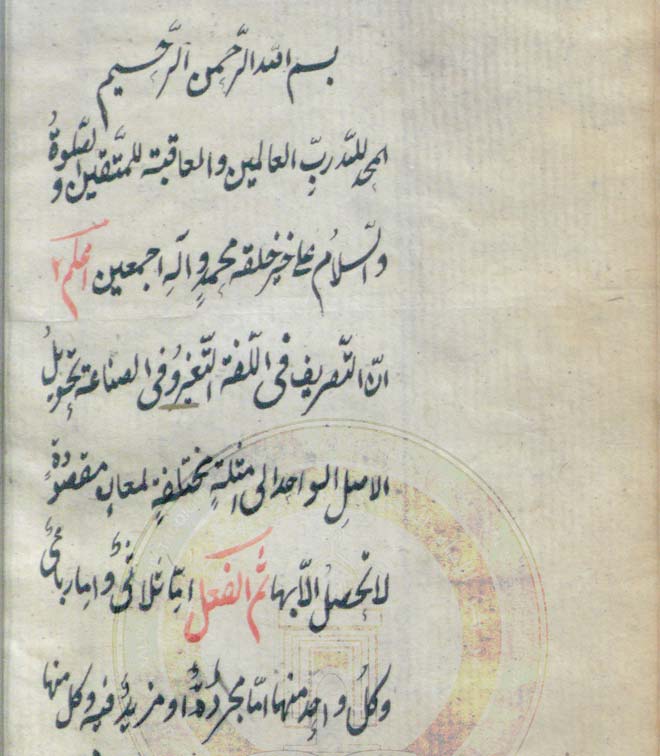 بسم الله الرَّحمن الرَّحيم
الحمد لله ربِّ العالمين والعاقبة للمتَّقين والصَّلوةُ
والسَّلامُ على خير خلقه محمدٍ وآلِهِ اجمعين اعلم
انّ التَّصريف في اللّغة التَّغييرُ وفى الصناعة تحْوِيلُ
الاصلِ الواحد الى امثلةٍ مختلفةٍ لمعانٍ مقصودةٍ
لا تحصلُ الاّ بها ثُم الفعل امّا ثلاثىٌّ وامّا رباعىٌّ
وكلُ واحدٍ منهما امّا مجردٌ او مزيدٌ فيه وكل منها